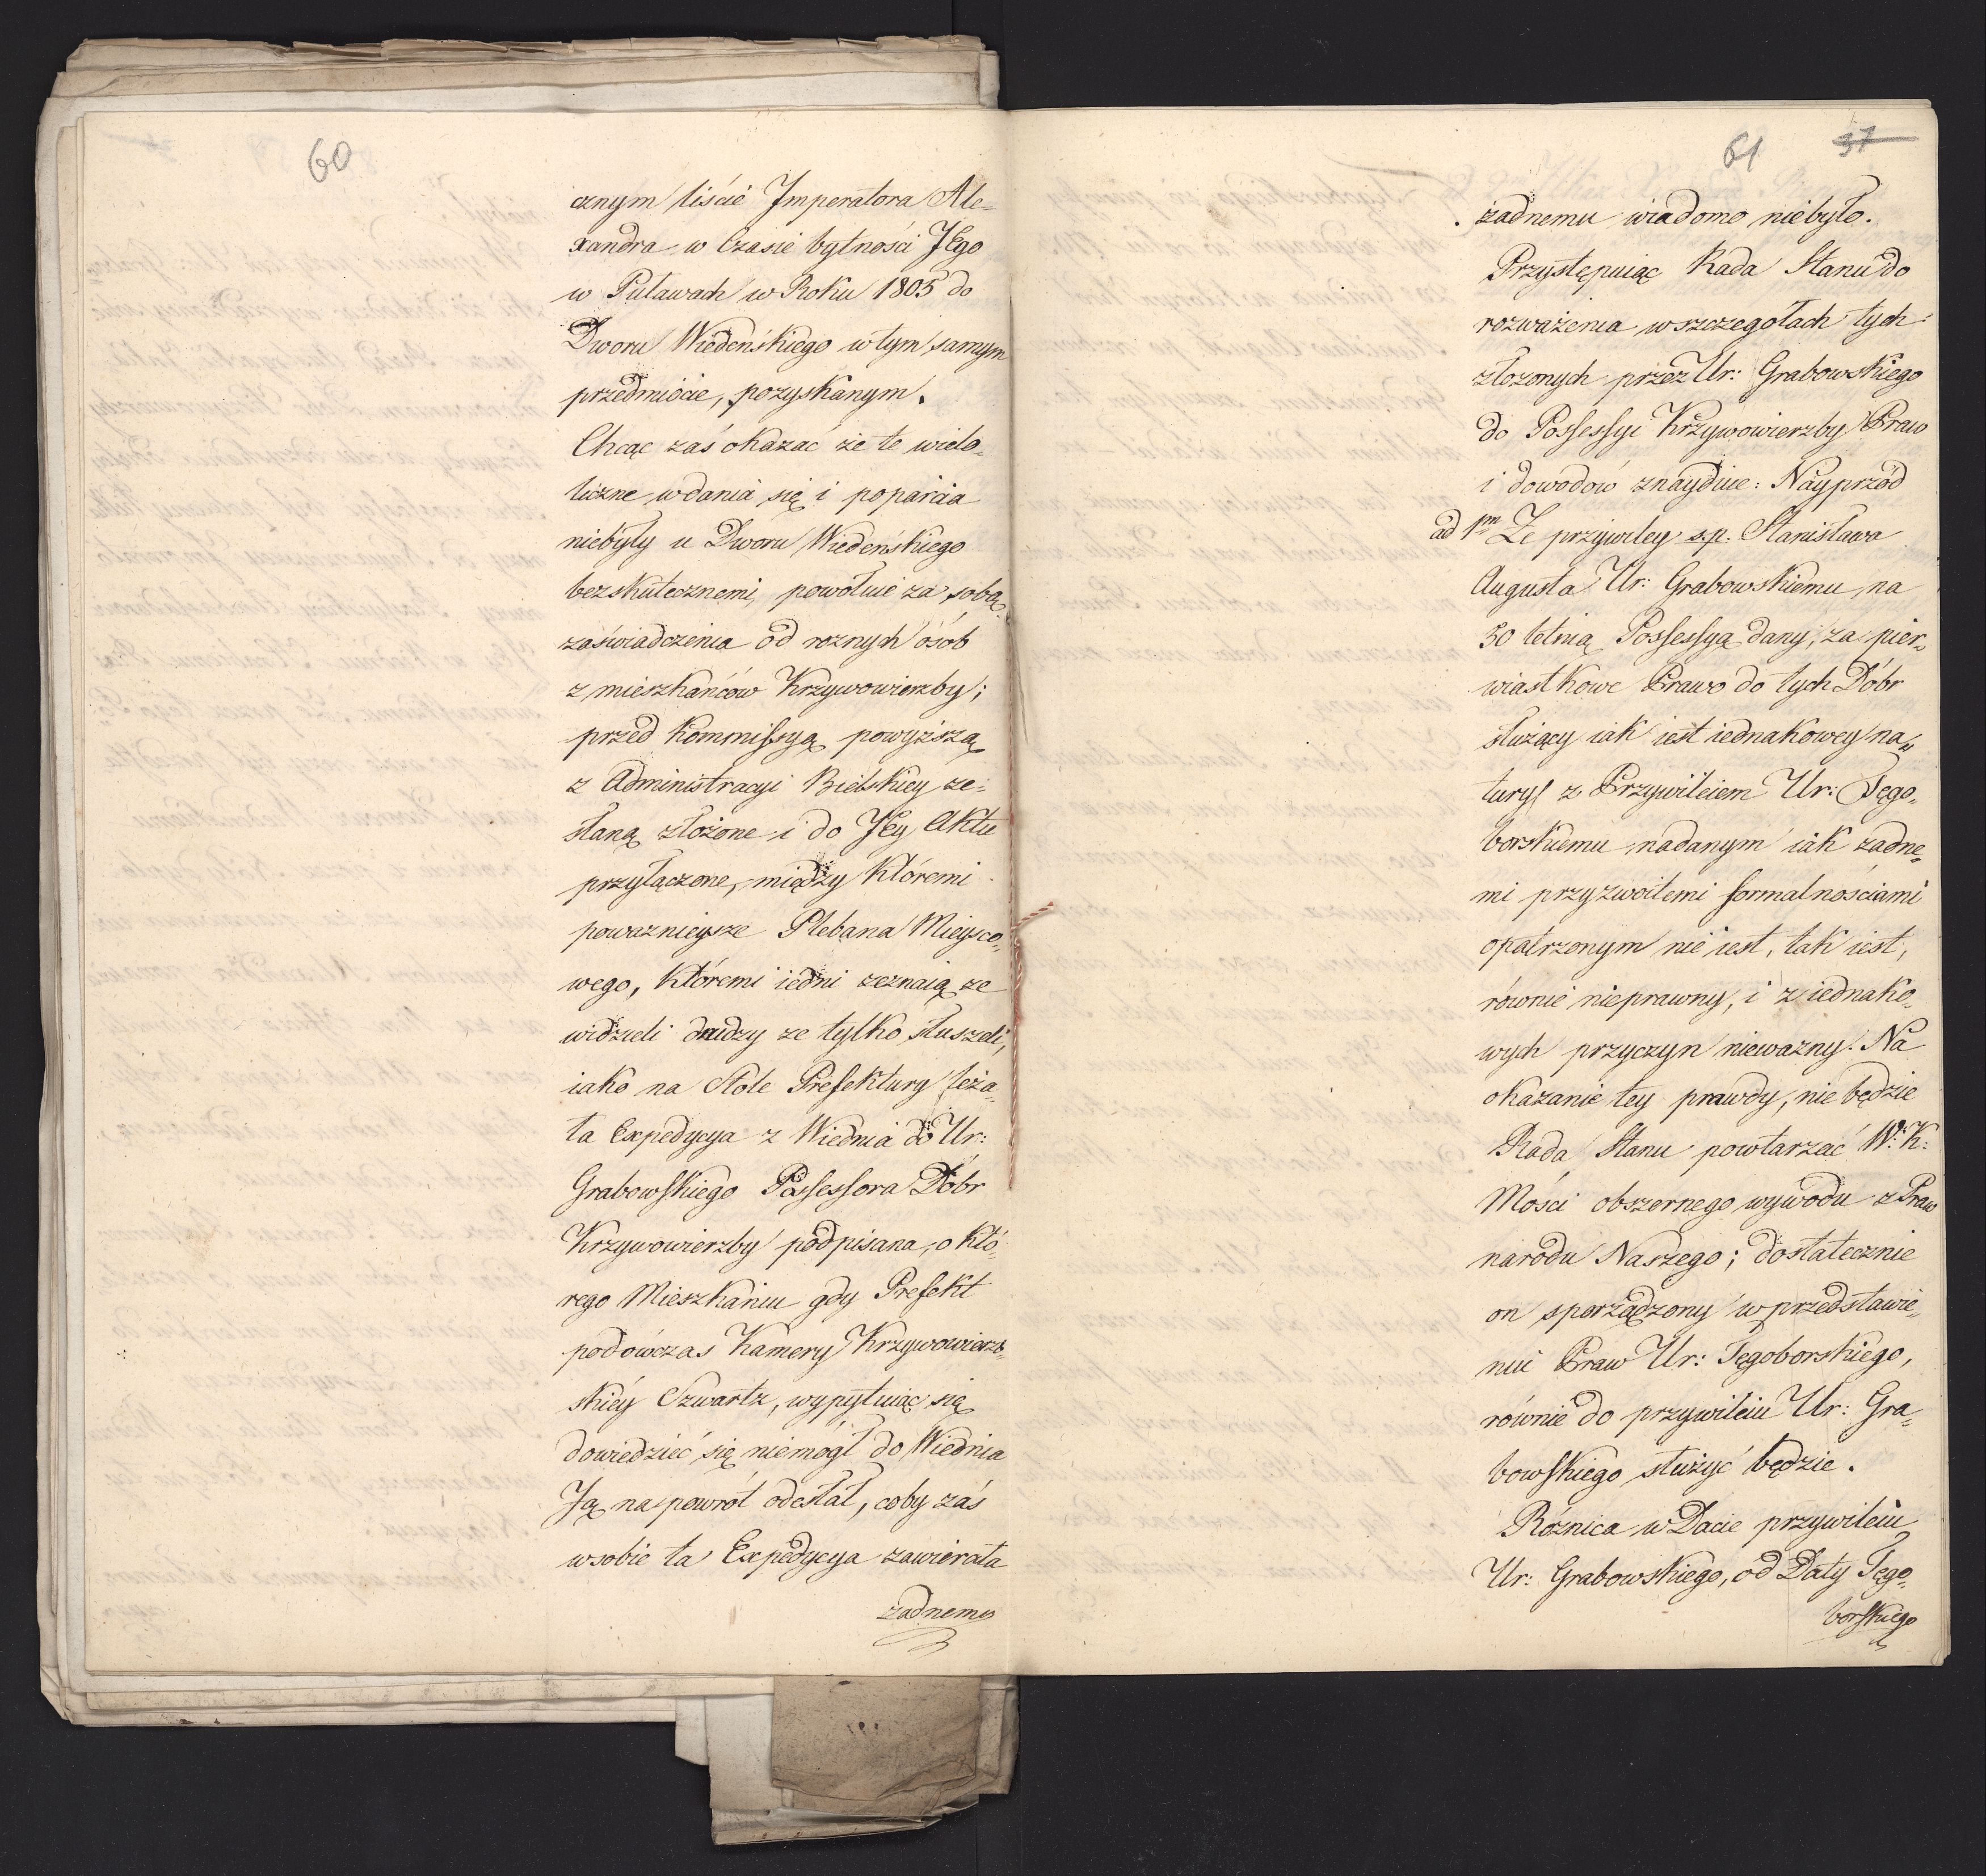 60
cznym liście Imperatora Ale=
xandra w Czasie bytności JEgo
w Puławach w Roku 1805 do
Dworu Wiedeńskiego w tym samym
przedmiocie, pozyskanym.
Chcąc zaś okazać że te wielo=
liczne wdania się i poparcia
niebyły u Dworu Wiedeńskiego
bezskutecznemi, powołuie za sobą
zaświadczenia od roznych osób
z mieszkańców Krzywowierzby;
przed Kommissyą powyższą
z Administracyi Bielskiey ze=
słaną złożone i do JEy Aktu
przyłączone, między któremi
powaznieysze Plebana Mieysco=
wego, któremi iedni zeznaią ze
widzieli drudzy ze tylko słuszeli,
iako na Stole Prefektury leża=
ła Expedycya z Wiednia do Ur:
Grabowskiego Possessora Dóbr
Krzywowierzby podpisana, o któ=
rego Mieszkaniu gdy Prefekt
podówczas Kamery Krzywowierzb=
skiéy Szwartz, wypytuiąc się
dowiedzieć się niemógł do Wiednia
Ją na powrót odesłał, coby zaś
w sobie ta Expedycya zawierała
żadnemu
61 37
żadnemu wiadomo niebyło.
Przystępuiąc Rada Stanu do
rozważenia w szczegółach tych
złozonych przez Ur: Grabowskiego
do Possessyi Krzywowierzby Praw
i dowodów znayduie: Nayprzód
ad 1m Że przywiley s.p. Stanisława
Augusta Ur: Grabowskiemu na
50 letnią Possessyą dany, za pier=
wiastkowe Prawo do tych Dóbr
służący iak iest iednakowey na=
tury z Przywileiem Ur: Tęgo=
borskiemu nadanym iak zadne=
mi przyzwoitemi formalnościami
opatrzonym nie iest, tak iest,
równie nieprawny, i z iednako=
wych przyczyn nieważny. Na
okazanie tey prawdy, nie będzie
Rada Stanu powtarzać W: K:
Mości obszernego wywodu z Praw
narodu Naszego; dostatecznie
on sporządzony w przedstawie=
niu Praw Ur: Tęgoborskiego,
równie do przywileiu Ur: Gra=
bowskiego służyć będzie.
Róźnica w Dacie przywileiu
Ur: Grabowskiego, od Daty Tęgo=
borskiego